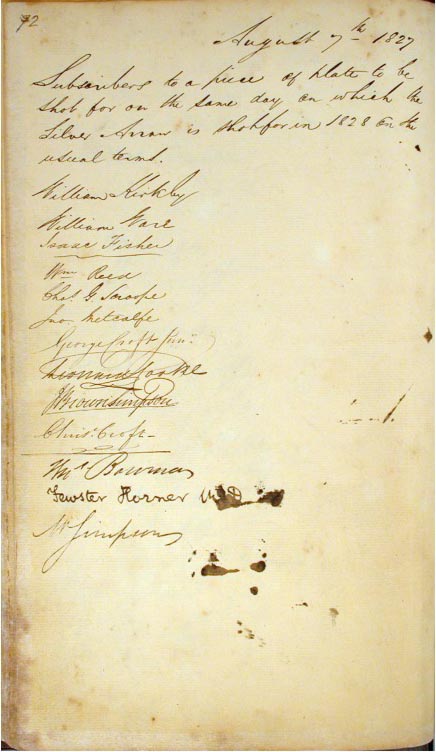 72
August 7th 1827
Subscribers to a piece of plate to be
shot for on the same day on which the
Silver Arrow is shot for in 1828 on the
usual terms.
William Kirkby
William Ware
Isaac Fisher
Wm Reed
Chas. G. Scroope
Jno. Metcalfe
George Croft Junr.
Leonard Cooke
J Brown Simpson
Chrisr. Croft
Thos Bowman
Tewster Horner M.D
Mr Simpson